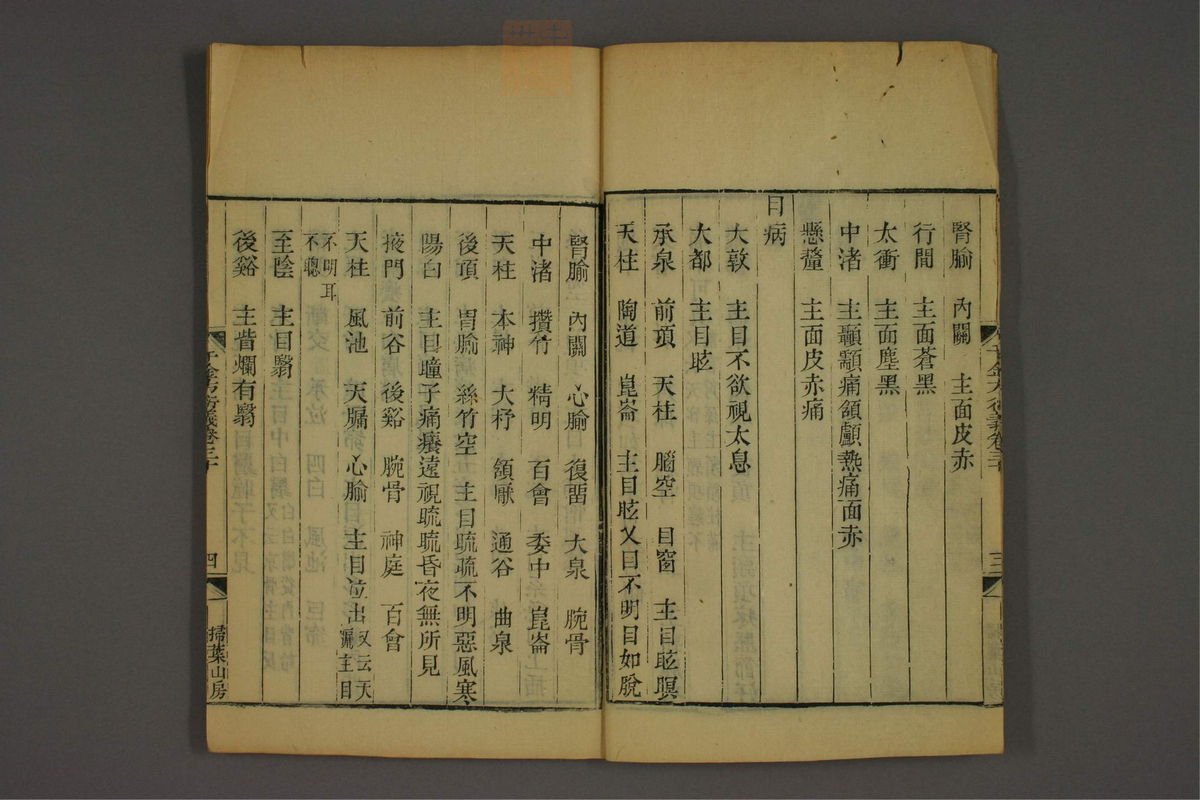 腎腧　內關　主面皮赤
行間　主面蒼黑
太衝　主面塵黑
中渚　主顳顬痛頷顱熱痛面赤
懸釐　主面皮赤痛
目病
大敦　主目不欲視太息
大都　主目眩
承泉　前頂　天柱　腦空　目窗　主目眩瞑
天柱　陶道　崑崙　主目眩又目不明目如脫
三
腎腧　內關　心腧　復留　大泉　腕骨
中渚　攢竹　精明　百會　委中　崑崙
天柱　本神　大杼　頷厭　通谷　曲泉
後頂　胃腧　絲竹空　主目䀮䀮不明惡風寒
陽白　主目瞳子痛癢遠視䀮䀮昏夜無所見
掖門　前谷　後谿　腕骨　神庭　百會
天柱　風池　天牖　心腧　主目泣出又云天牖主目
不明耳不聰
至陰　主目翳
後谿　主眥爛有翳
千金方衍義卷三十
四
掃葉山房